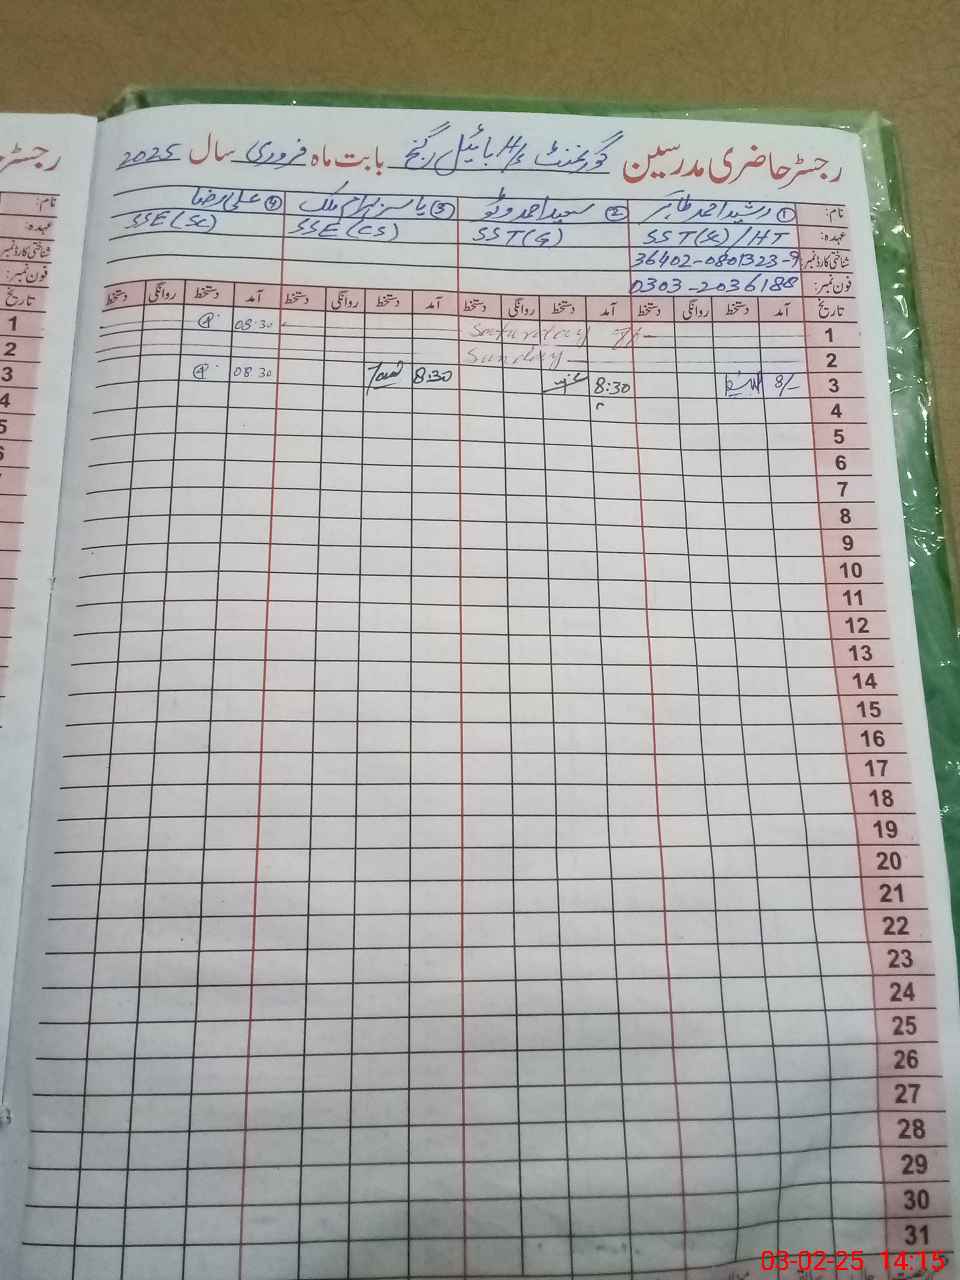 رجسٹر حاضری مدرسین گورنمنٹ H/S بابت ماہ فروری سال 2025
نام: ① رشید احمد طاہر ② سعید احمد وٹو ③ یاسر بہرام ملک ④ علی رضا
عہدہ: SST(Sc)/HT SST(G) SSE(CS) SSE(Sc)
شناختی کارڈ نمبر: 36402-0801323-9
فون نمبر: 0303-2036188
تاریخ آمد دستخط روانگی دستخط آمد دستخط روانگی دستخط آمد دستخط روانگی دستخط آمد دستخط روانگی دستخط
1 Saturday 08:30
2 Sunday
3 8/- 8:30 8:30 08 30
4
5
6
7
8
9
10
11
12
13
14
15
16
17
18
19
20
21
22
23
24
25
26
27
28
29
30
31
03-02-25 14:15